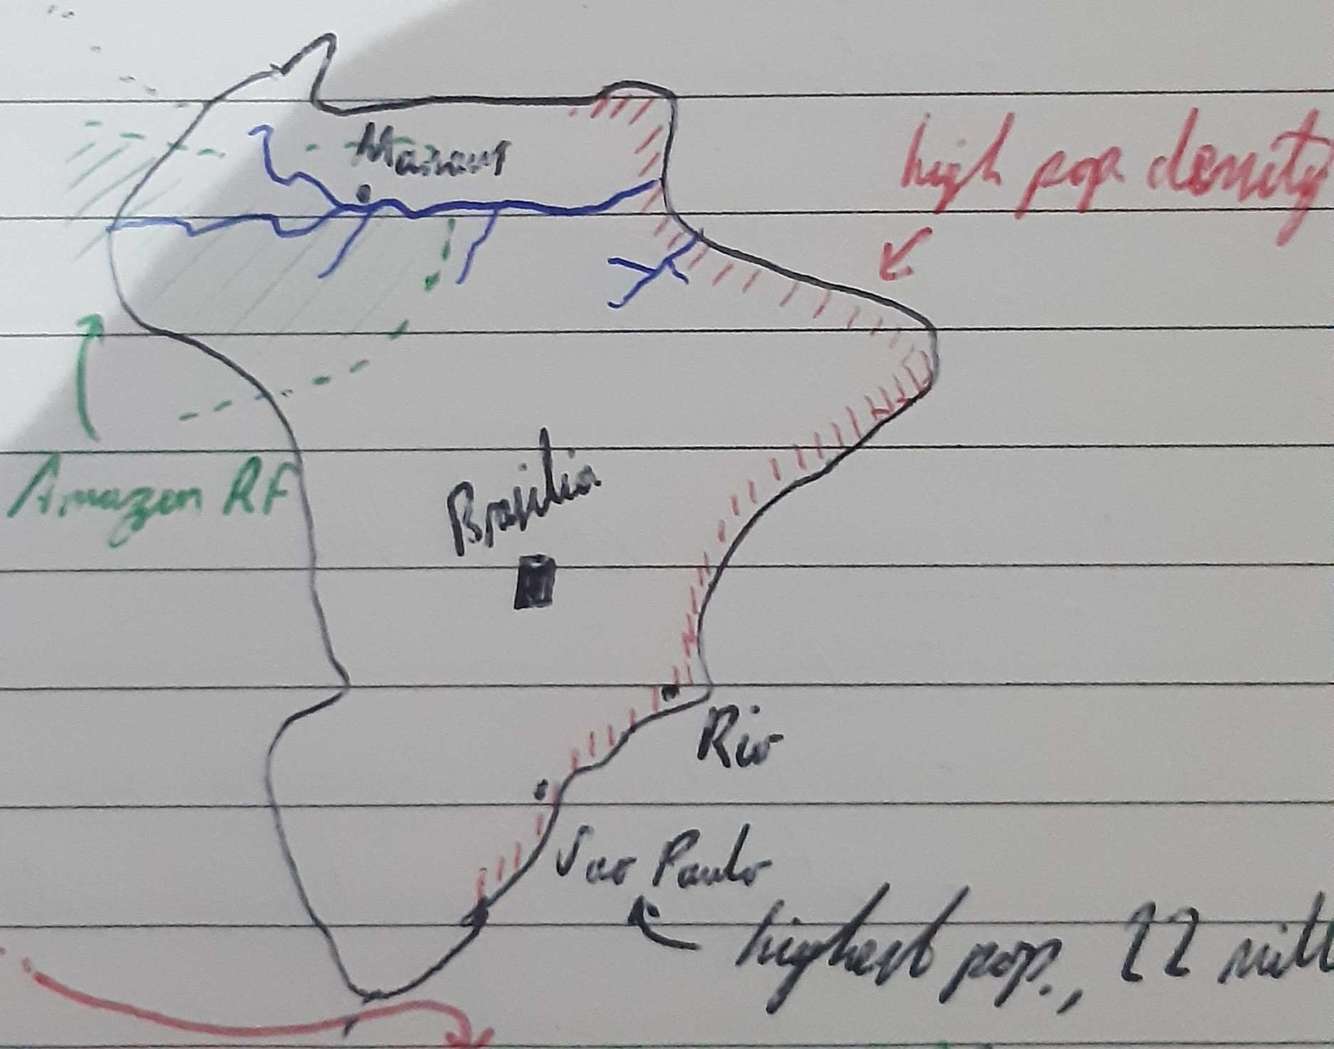 Manaus
high pop. density
Amazon RF
Brasilia
Rio
Sao Paulo
highest pop., 22 mill